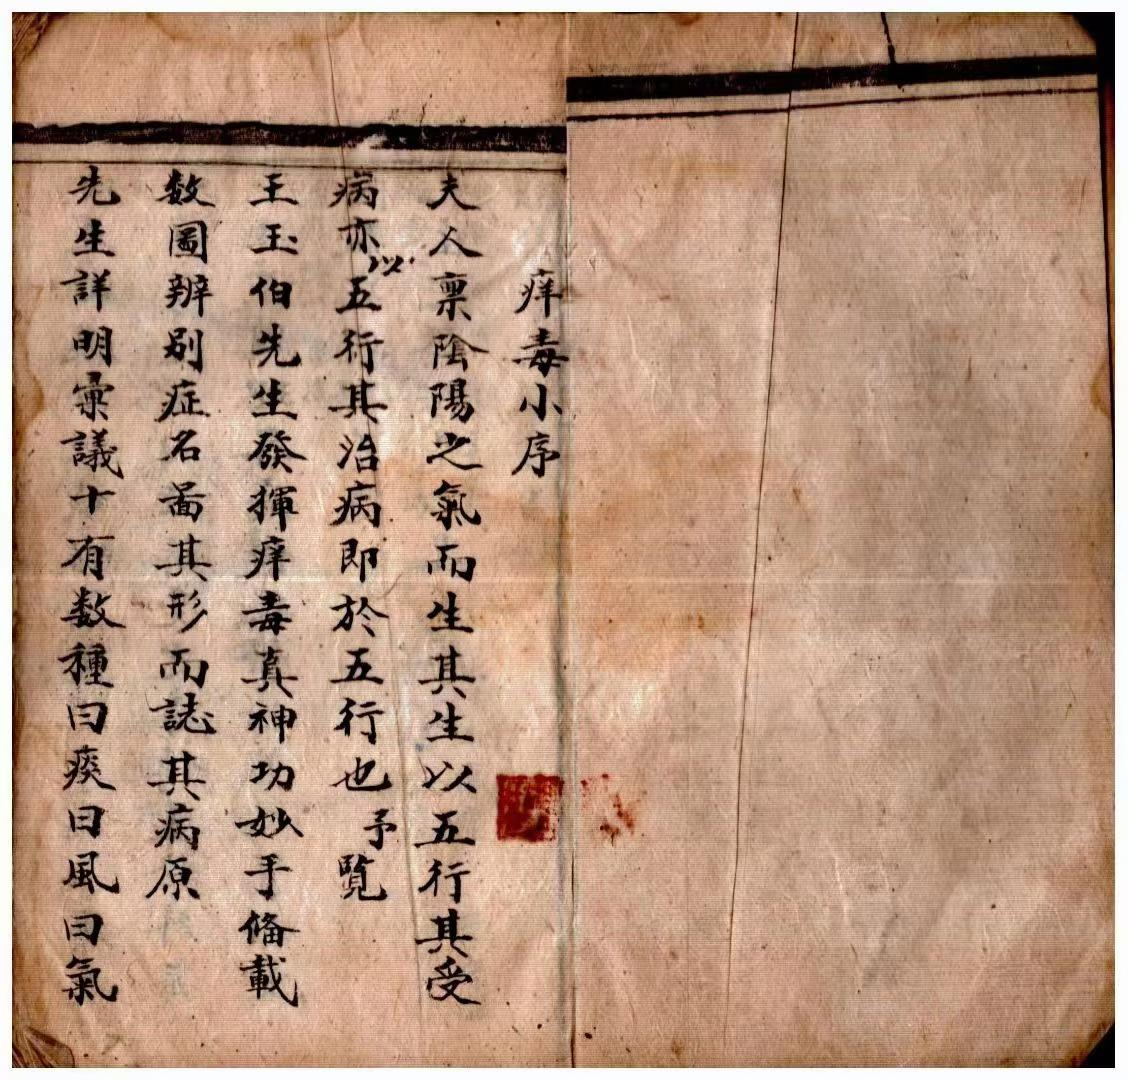 痒毒小序
夫人禀陰陽之氣而生其生以五行其受
病亦以五行其治病即於五行也予覧
王玉伯先生發揮痒毒真神功妙手俻載
数圖辨别症名啚其形而誌其病原
先生詳明彚議十有数種曰痰曰風曰氣